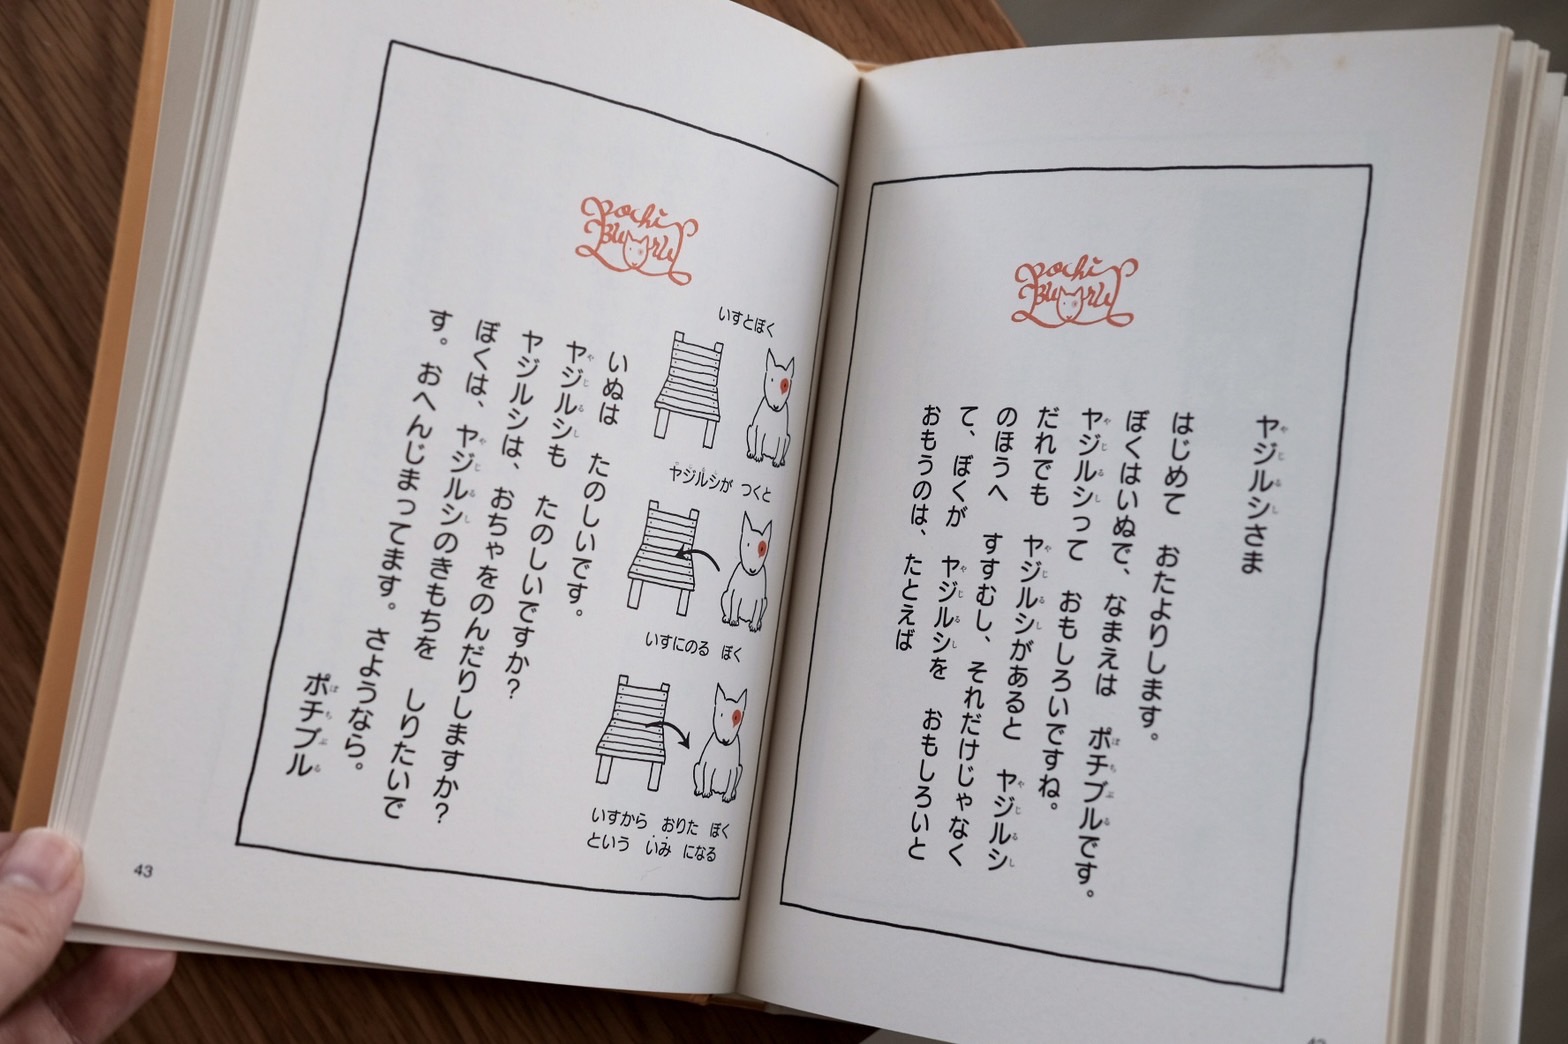 Pochi
Buru
ヤジルシさま
はじめて　おたよりします。
ぼくはいぬで、なまえは　ポチブルです。
ヤジルシって　おもしろいですね。
だれでも　ヤジルシがあると　ヤジルシ
のほうへ　すすむし、それだけじゃなく
て、ぼくが　ヤジルシを　おもしろいと
おもうのは、たとえば
Pochi
Buru
いすとぼく
ヤジルシが　つくと
いすにのる　ぼく
いすから　おりた　ぼく
という　いみ　になる
いぬは　たのしいです。
ヤジルシも　たのしいですか？
ヤジルシは、おちゃをのんだりしますか？
ぼくは、ヤジルシのきもちを　しりたいで
す。おへんじまってます。さようなら。
ポチブル
43